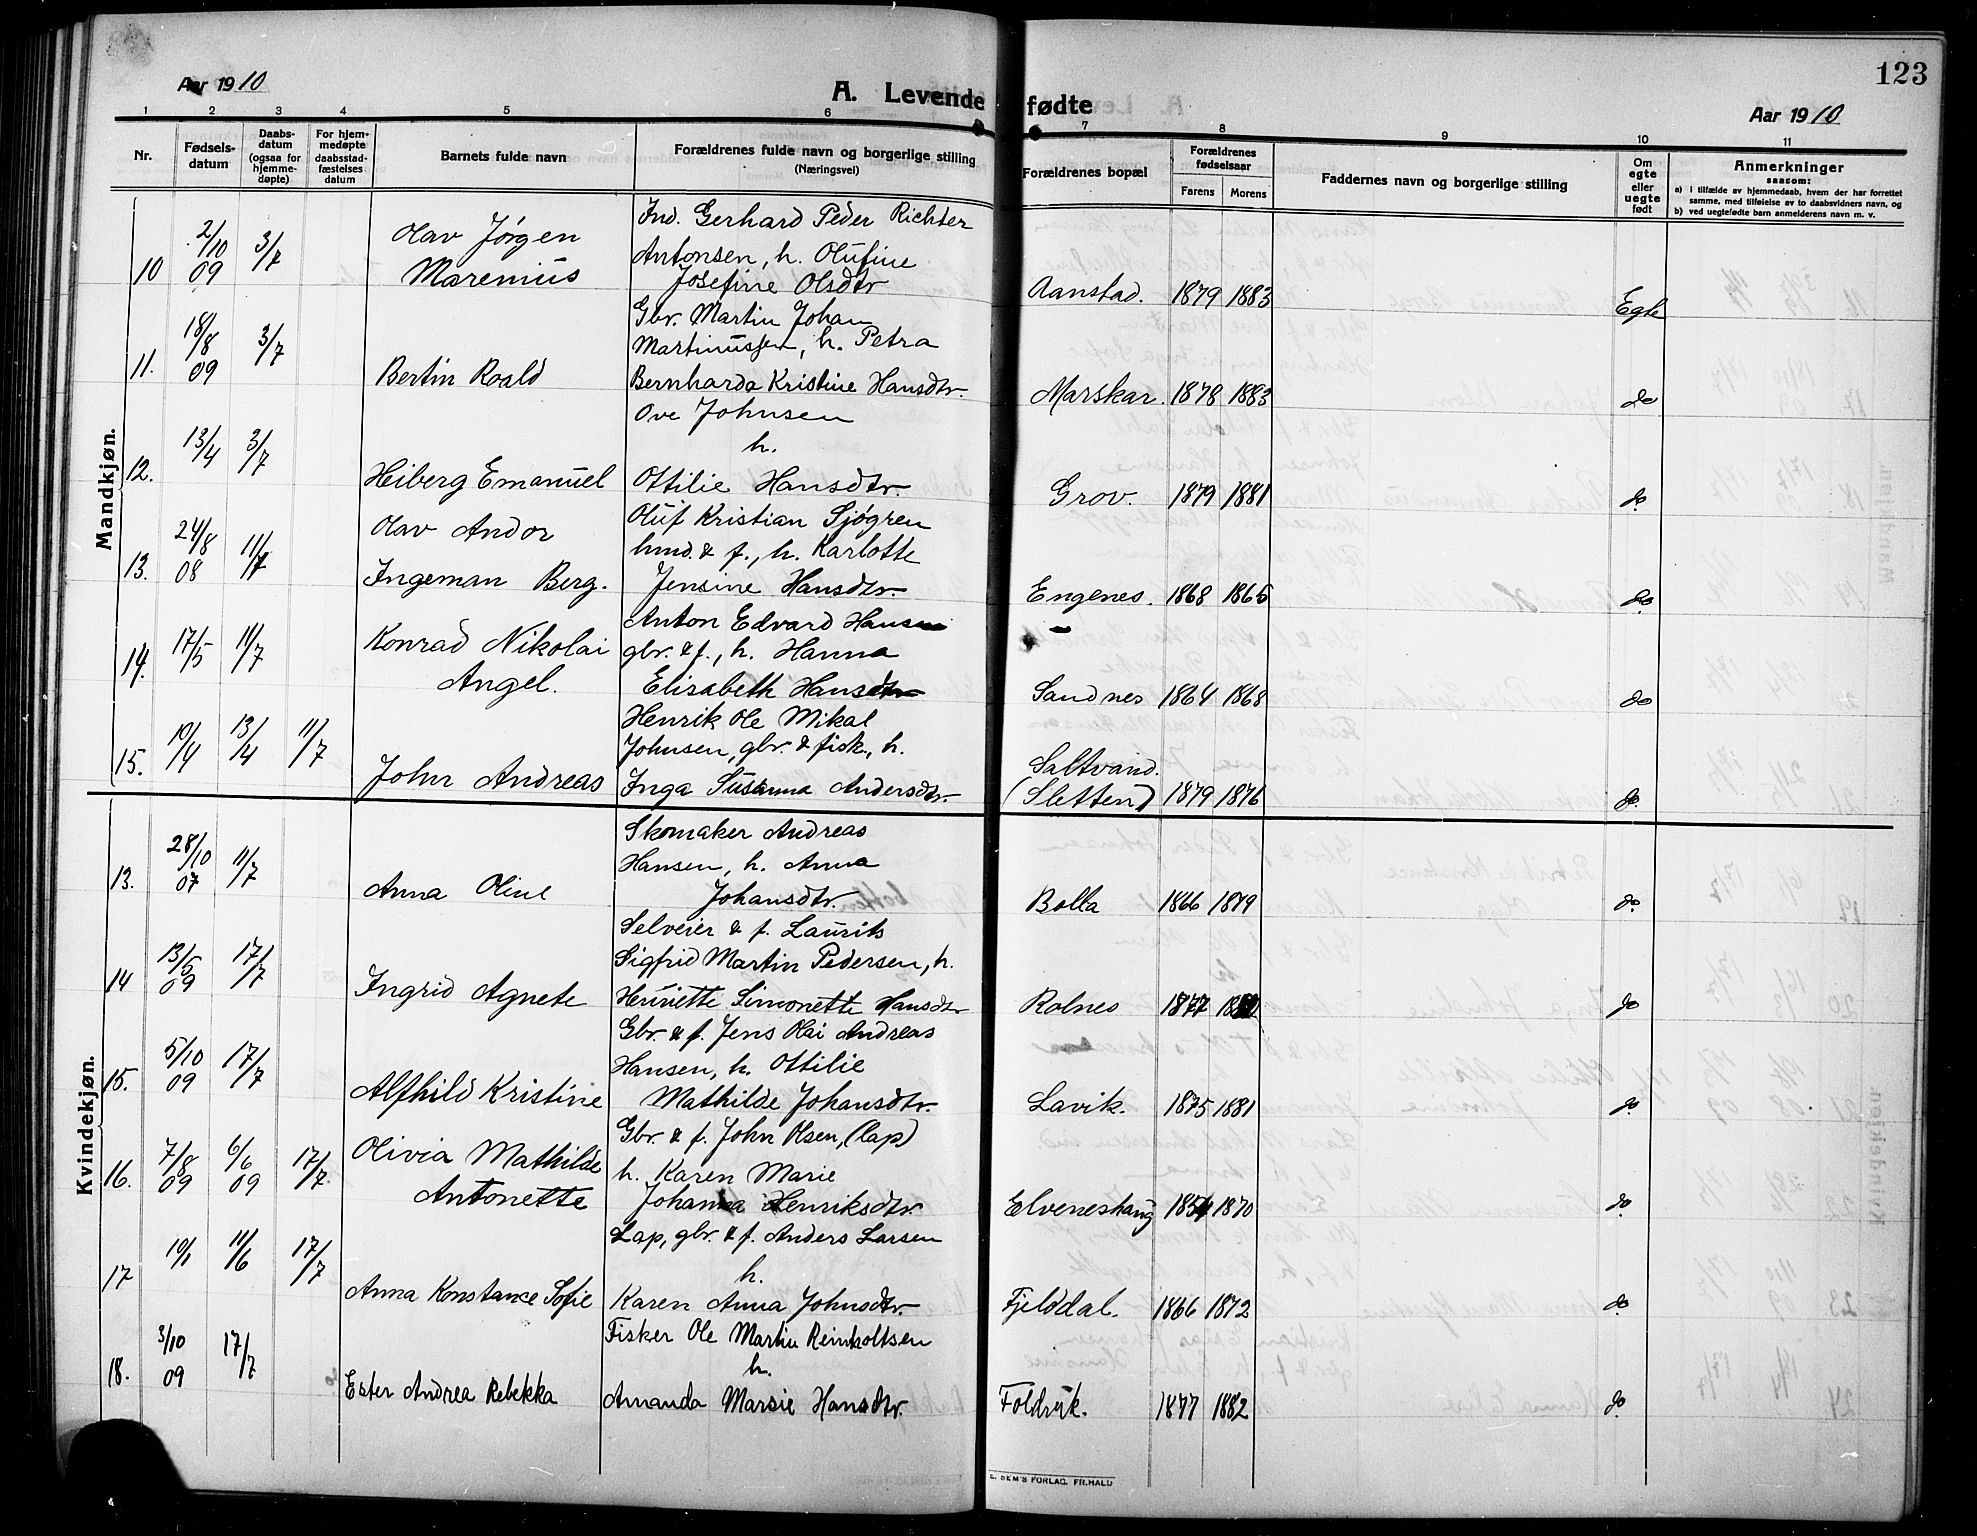 123
Aar 1910
A. Levendefødte
Aar 1910
1 2 3 4 5 6 7 8 9 10 11
Nr.
Fødsels-
datum
Daabs-
datum
(ogsaa for
hjemme-
døpte)
For hjem-
medøpte
daabsstad-
fæstelses
datum
Barnets fulde navn
Forældrenes fulde navn og borgerlige stilling
(Næringsvei)
Forældrenes bopæl
Forældrenes
fødselsaar
Farens Morens
Faddernes navn og borgerlige stilling
Om
egte
eller
uegte
født
Anmerkninger
saasom:
a) i tilfælde av hjemmedaab, hvem der har forrettet
samme, med tilføielse av to daabsvidners navn, og
b) ved uegtefødte barn anmelderens navn m. v.
Mandkjøn.
10 2/10 09 3/7 Olav Jørgen
Maremius
Ind. Gerhard Peder Richter
Antonsen, h. Olufine
Josefine Olsdtr
Aanstad. 1879 1883 Egte
11. 18/8 09 3/7 Bertin Roald
Gbr. Martin Johan
Martinussen, h. Petra
Bernharda Kristine Hansdtr.
Marskar. 1878 1883 do
12. 13/4 3/7 Heiberg Emanuel
Ove Johnsen
h.
Ottilie Hansdtr.
Grov. 1879 1881 do
13. 24/8 08 11/7 Olav Andor
Ingeman Berg.
Oluf Kristian Sjøgren
hmd. & f., h. Karlotte
Jensine Hansdtr.
Engenes. 1868 1865 do
14. 17/5 11/7 Konrad Nikolai
Angel.
Anton Edvard Hansen
gbr. & f., h. Hanna
Elisabeth Hansdtr
Sandnes 1864 1868 do
15. 10/4 13/4 11/7 John Andreas
Henrik Ole Mikal
Johnsen, gbr. & fisk., h.
Inga Susanna Andersdtr.
Saltvand.
(Sletten) 1879 1876 do.
Kvindekjøn.
13. 28/10 07 11/7 Anna Oline
Skomaker Andreas
Hansen, h. Anna
Johansdtr.
Bolla 1866 1879 do.
14 13/5 09 17/7 Ingrid Agnete
Selveier & f. Laurits
Sigfrid Martin Pedersen, h.
Henriette Simonette Hansdtr
Rolnes 1877 do
15. 5/10 09 17/7 Alfhild Kristine
Gbr. & f. Jens Olai Andreas
Hansen, h. Ottilie
Mathilde Johansdtr.
Lavik. 1875 1881 do
16. 7/8 09 6/6 09 17/7 Olivia Mathilde
Antonette
Gbr. & f. John Olsen, (lap)
h. Karen Marie
Johanna Henriksdtr.
Elveneshaug 1854 1870 do.
17 10/1 11/6 17/7 Anna Konstance Sofie
Lap, gbr. & f. Anders Larsen
h.
Karen Anna Johnsdtr.
Fjelddal. 1866 1872 do.
18. 3/10 09 17/7 Ester Andrea Rebekka
Fisker Ole Martin Reinholtsen
h.
Amanda Marsie Hansdtr.
Foldvik. 1877 1882 do.
E. SEM'S FORLAG, FR.HALD